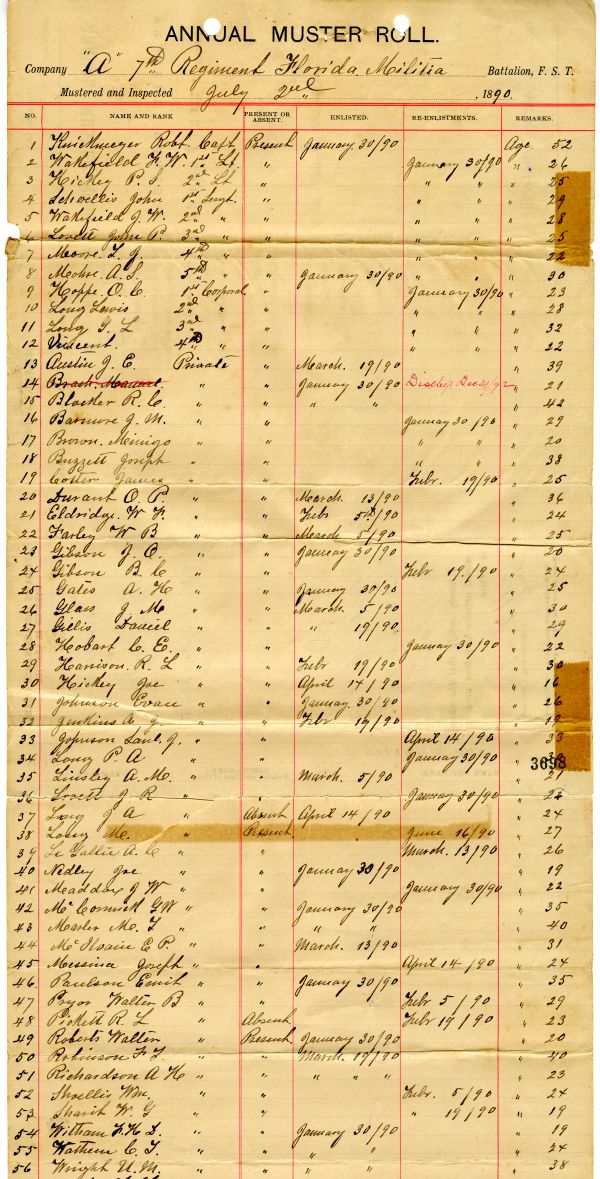 ANNUAL MUSTER ROLL.
Company "A" 7th Regiment Florida Militia Battalion, F. S. T.
Mustered and Inspected July 2nd, 1890.
NO. NAME AND RANK PRESENT OR ABSENT. ENLISTED. RE-ENLISTMENTS. REMARKS.
1 Robt. Capt Present January 30/90 Age 52
2 Wakefield F. W. 1st Lt. " January 30/90 " 26
3 Hickey P. S. 2nd Lt " " " " 25
4 John 1st Sergt. " " " " 29
5 Wakefield J. W. 2nd " " " " " 28
6 Lovett John P. 3rd " " " " " 25
7 Moore L. J. 4th " " " " " 22
8 A. S. 5th " " January 30/90 " 30
9 Hoppe O. C. 1st Corporal " January 30/90 " 23
10 Long Lewis 2nd " " " " " 28
11 Long G. L 3rd " " " " " 32
12 Vincent 4th " " " " " 22
13 Austin J. E. Private " March. 19/90 " 39
14 Brash Manuel " " January 30/90 Disch'g Dec 31/92 " 21
15 Blocker R. C. " " " " " 42
16 Barmore J. M. " " January 30/90 " 29
17 Brown " " " " " 20
18 Buzzett Joseph " " " " " 38
19 Cotter James " " Febr. 19/90 " 25
20 Durant O. P. " " March. 13/90 " 36
21 Eldridge. W. F. " " Febr 5th/90 " 24
22 Farley W B " " March 5/90 " 25
23 Gibson J. C " " January 30/90 " 20
24 Gibson B. C " " Febr 19./90 " 24
25 Gates A. H " " January 30/90 " 25
26 Glass J. M " " March. 5/90 " 30
27 Gillis Daniel " " " 19/90. " 29
28 Hobart C. E. " " January 30/90 " 22
29 Harrison. R. L " " Febr 19/90 " 30
30 Hickey Joe " " April 14/90 " 16
31 Johnson Evan " " January 30/90 " 26
32 Jenkins A. J. " " Febr 19/90 " 19
33 Johnson J. " " April 14/90 " 33
34 Long P. A " " January 30/90 "
3698
35 Linsley A. M. " " March. 5/90 " 27
36 Lovett J R " " January 30/90 "
37 Long J A " Absent April 14/90 " 24
38 Long M. " Present June 16/90 " 27
39 Le Gallie A. C " " March. 13/90 " 26
40 Nedley Joe " " January 30/90 " 19
41 Maddox J W " " January 30/90 " 22
42 McCormick G W " " January 30/90 " 35
43 M. T " " " " " 40
44 McIlvain E P. " " March. 13/90 " 31
45 Messina Joseph " " April 14/90 " 24
46 Paulson Emil " " January 30/90 " 35
47 Pryor Walter B " " Febr 5/90 " 29
48 Pickett R. L " Absent Febr 19/90 " 23
49 Roberts Walter " Present January 30/90 " 20
50 Robinson F. T. " " March. 19/90 " 40
51 Richardson A H " " " " " " 23
52 Wm. " " Febr. 5/90 " 24
53 Sharit W. G " " " 19/90 " 19
54 F. H. " " January 30/90 " 19
55 C. T. " " " " " 24
56 Wright U. M. " " " " " 38